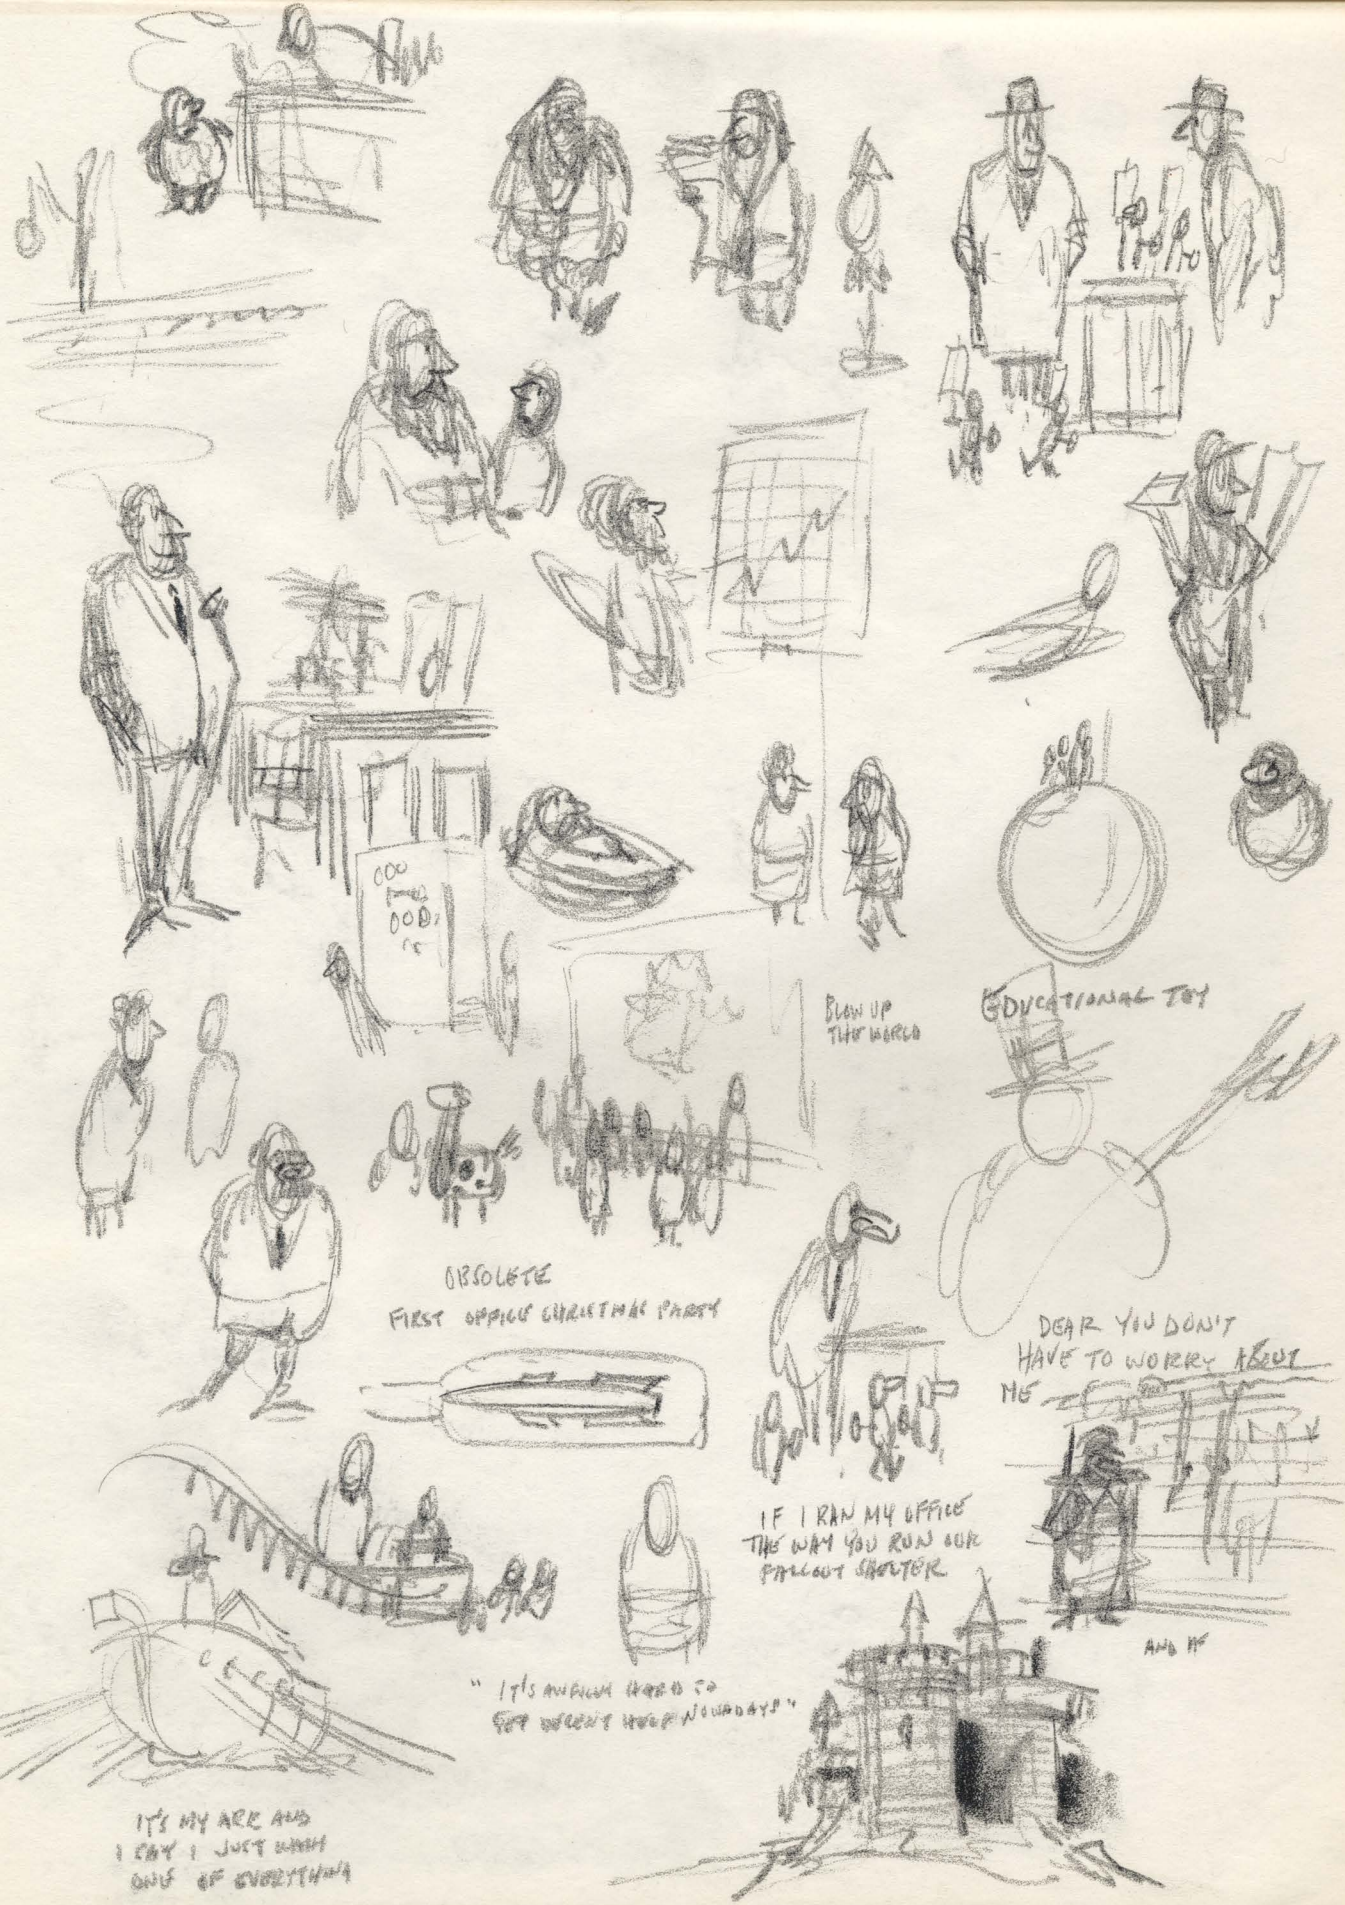 BLOW UP
THE WORLD
EDUCATIONAL TOY
OBSOLETE
FIRST OFFICE CHRISTMAS PARTY
DEAR YOU DON'T
HAVE TO WORRY ABOUT
ME
IF I RAN MY OFFICE
THE WAY YOU RUN OUR
FALLOUT SHELTER
AND IF
"IT'S AWFULLY HARD TO
GET DECENT HELP NOWADAYS"
IT'S MY ARK AND
I SAY I JUST WANT
ONE OF EVERYTHING